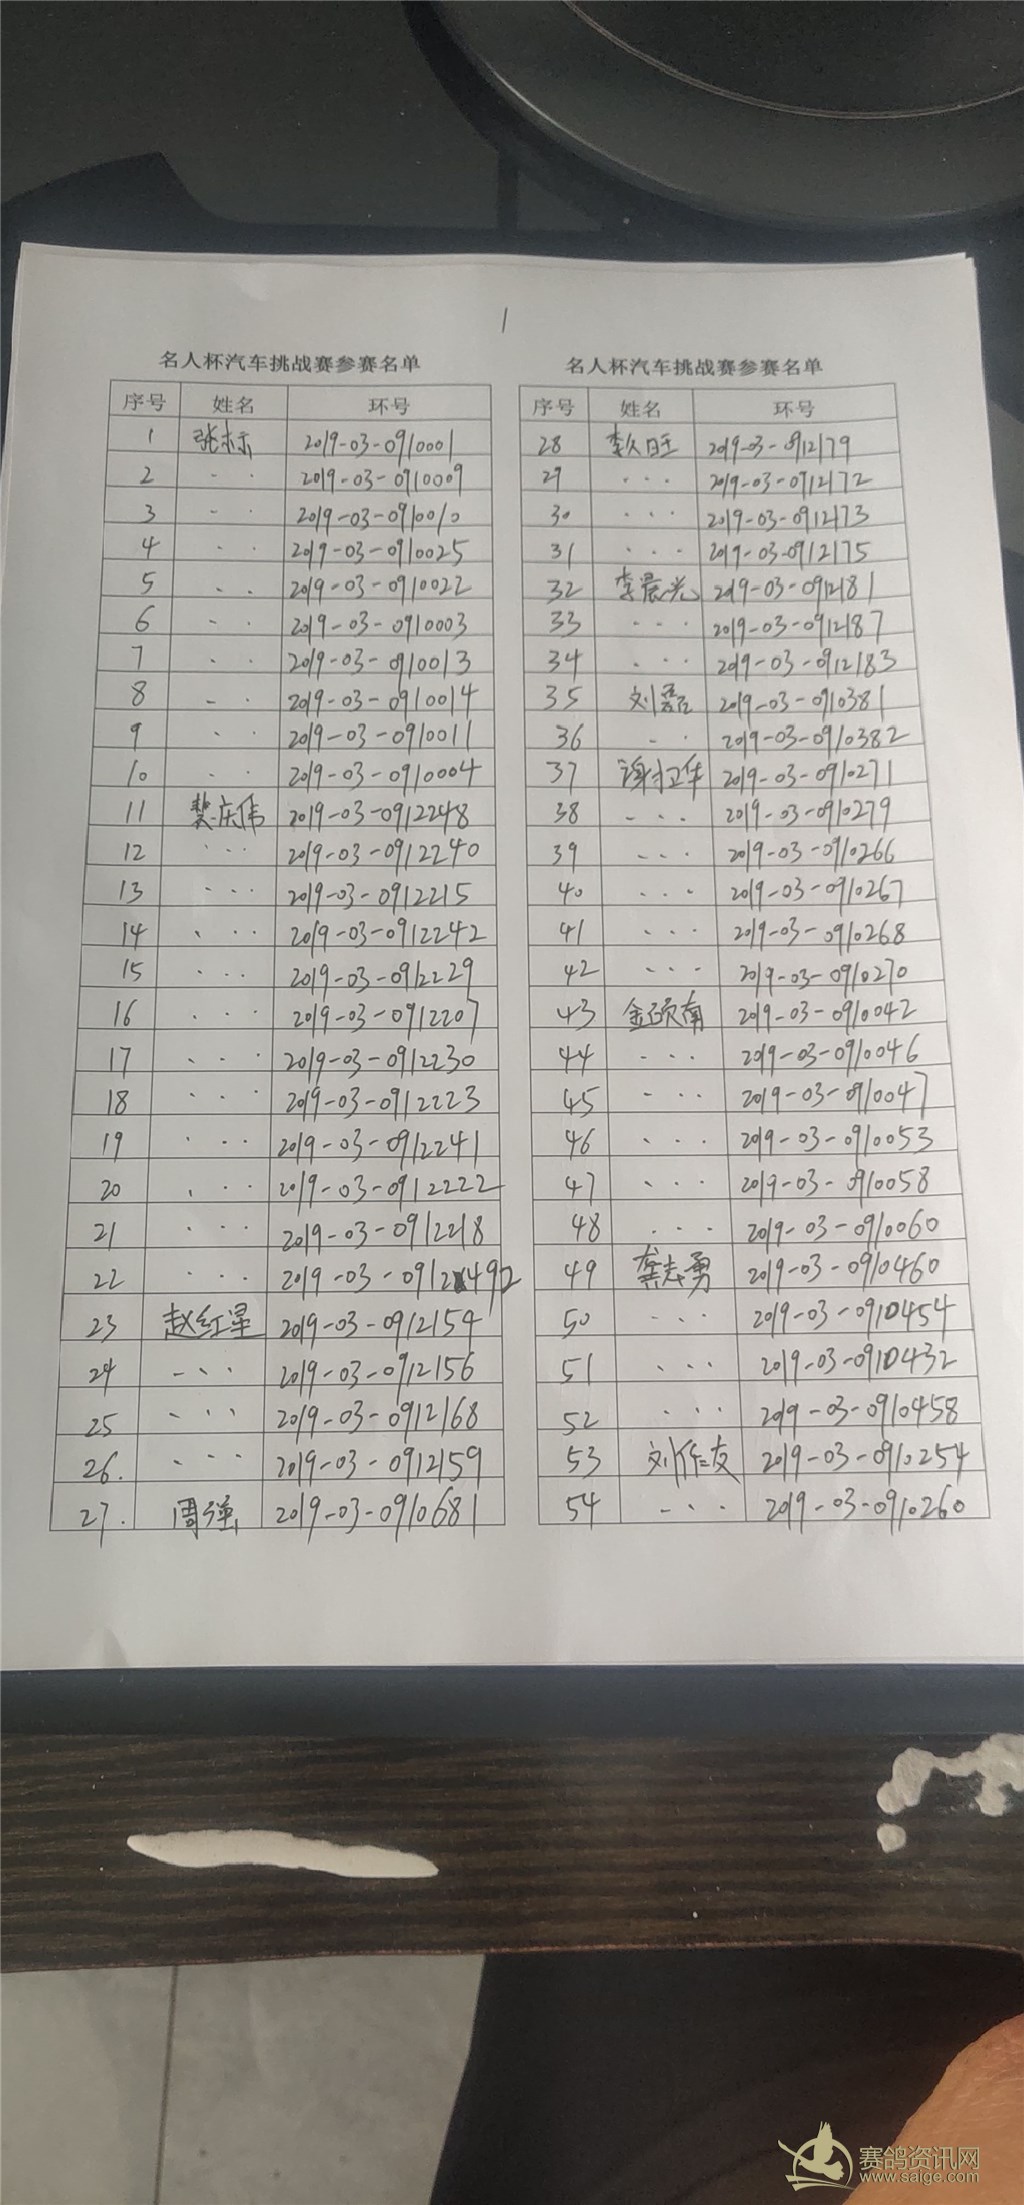 1
名人杯汽车挑战赛参赛名单
序号 姓名 环号
1 张标 2019-03-0910001
2 · · 2019-03-0910009
3 · · 2019-03-0910010
4 · · 2019-03-0910025
5 · · 2019-03-0910022
6 · · 2019-03-0910003
7 · · 2019-03-0910013
8 · · 2019-03-0910014
9 · · 2019-03-0910011
10 · · 2019-03-0910004
11 樊庆伟 2019-03-0912248
12 · · · 2019-03-0912240
13 · · · 2019-03-0912215
14 · · · 2019-03-0912242
15 · · · 2019-03-0912229
16 · · · 2019-03-0912207
17 · · · 2019-03-0912230
18 · · · 2019-03-0912223
19 · · · 2019-03-0912241
20 · · · 2019-03-0912222
21 · · · 2019-03-0912218
22 · · · 2019-03-0912
23 赵红星 2019-03-0912154
24 · · · 2019-03-0912156
25 · · · 2019-03-0912168
26. · · · 2019-03-0912159
27. 周强 2019-03-0910681
名人杯汽车挑战赛参赛名单
序号 姓名 环号
28 李久旺 2019-03-0912179
29 · · · 2019-03-0912172
30 · · · 2019-03-0912173
31 · · · 2019-03-0912175
32 李晨光 2019-03-0912181
33 · · · 2019-03-0912187
34 · · · 2019-03-0912183
35 刘 2019-03-0910381
36 · · 2019-03-0910382
37 谢卫华 2019-03-0910271
38 · · · 2019-03-0910279
39 · · · 2019-03-0910266
40 · · · 2019-03-0910267
41 · · · 2019-03-0910268
42 · · · 2019-03-0910270
43 金硕南 2019-03-0910042
44 · · · 2019-03-0910046
45 · · · 2019-03-0910047
46 · · · 2019-03-0910053
47 · · · 2019-03-0910058
48 · · · 2019-03-0910060
49 龚志勇 2019-03-0910460
50 · · · 2019-03-0910454
51 · · · 2019-03-0910432
52 · · · 2019-03-0910458
53 刘作友 2019-03-0910254
54 · · · 2019-03-0910260
赛鸽资讯网
www.saige.com